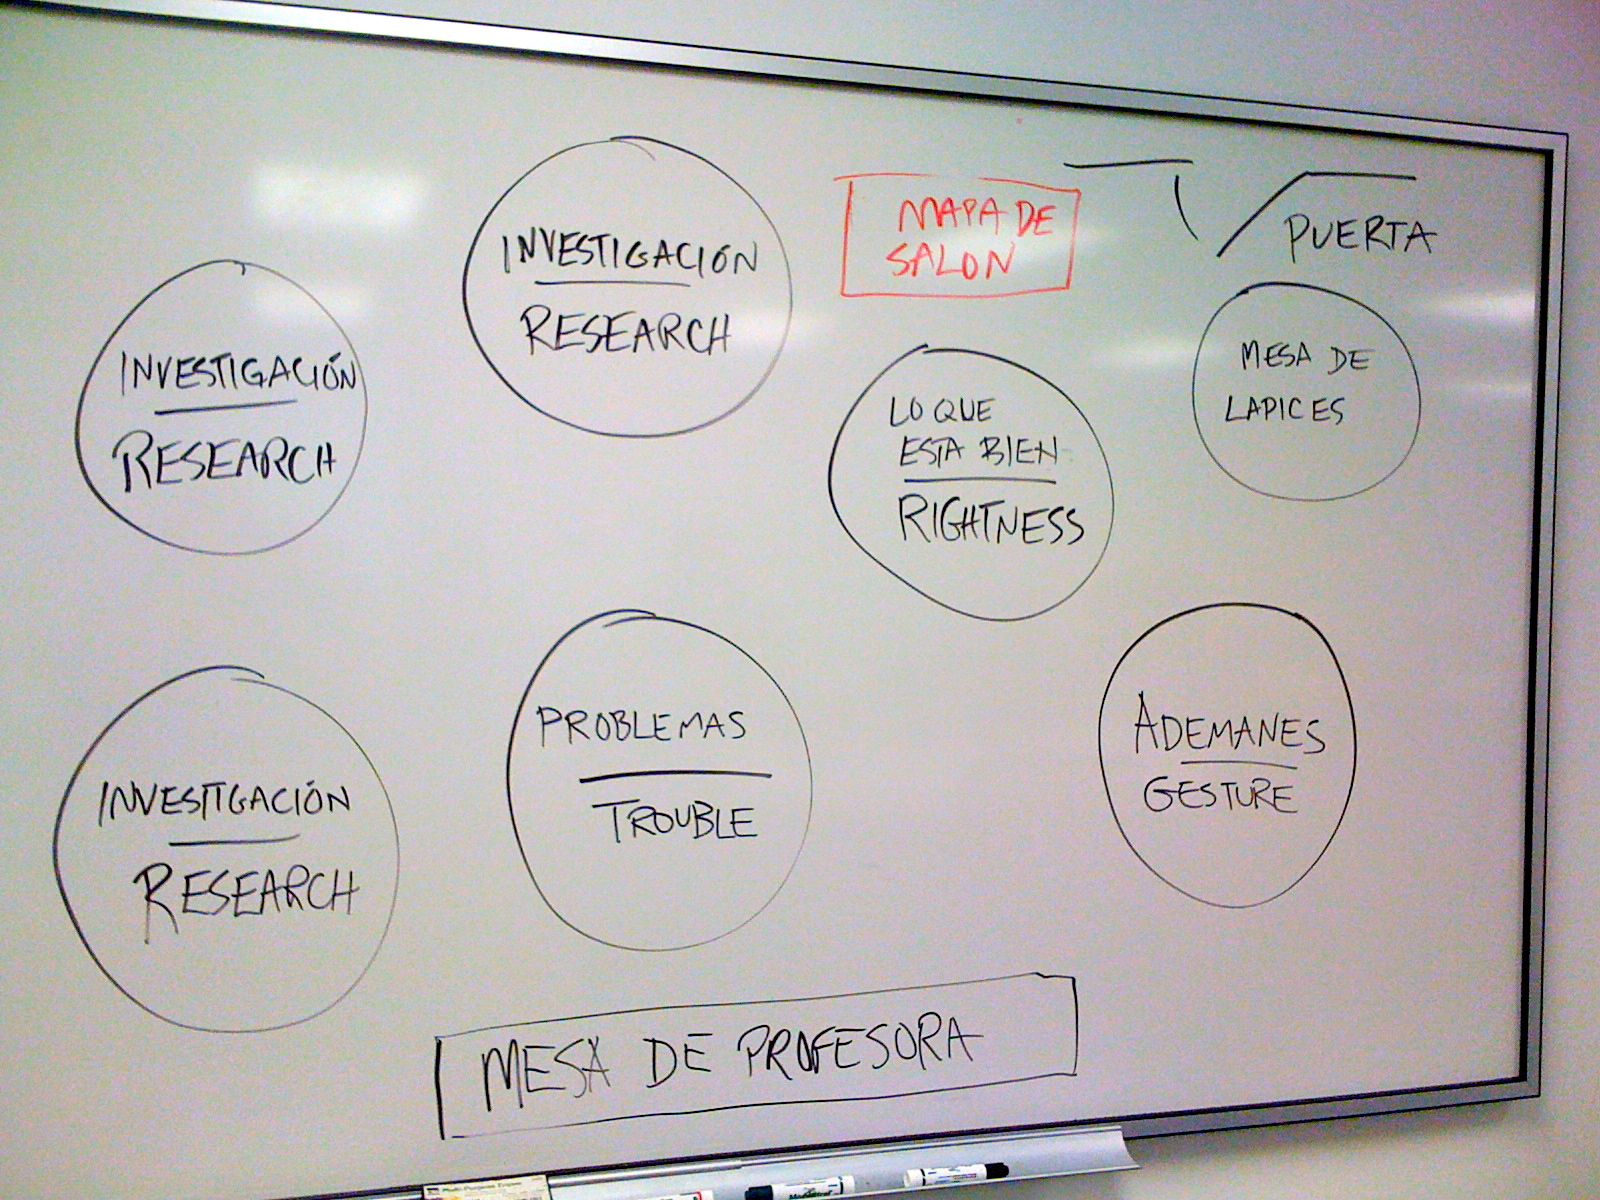 MAPA DE
SALON
PUERTA
INVESTIGACIÓN
RESEARCH
INVESTIGACIÓN
RESEARCH
MESA DE
LAPICES
LO QUE
ESTA BIEN
RIGHTNESS
INVESTIGACIÓN
RESEARCH
PROBLEMAS
TROUBLE
ADEMANES
GESTURE
MESA DE PROFESORA